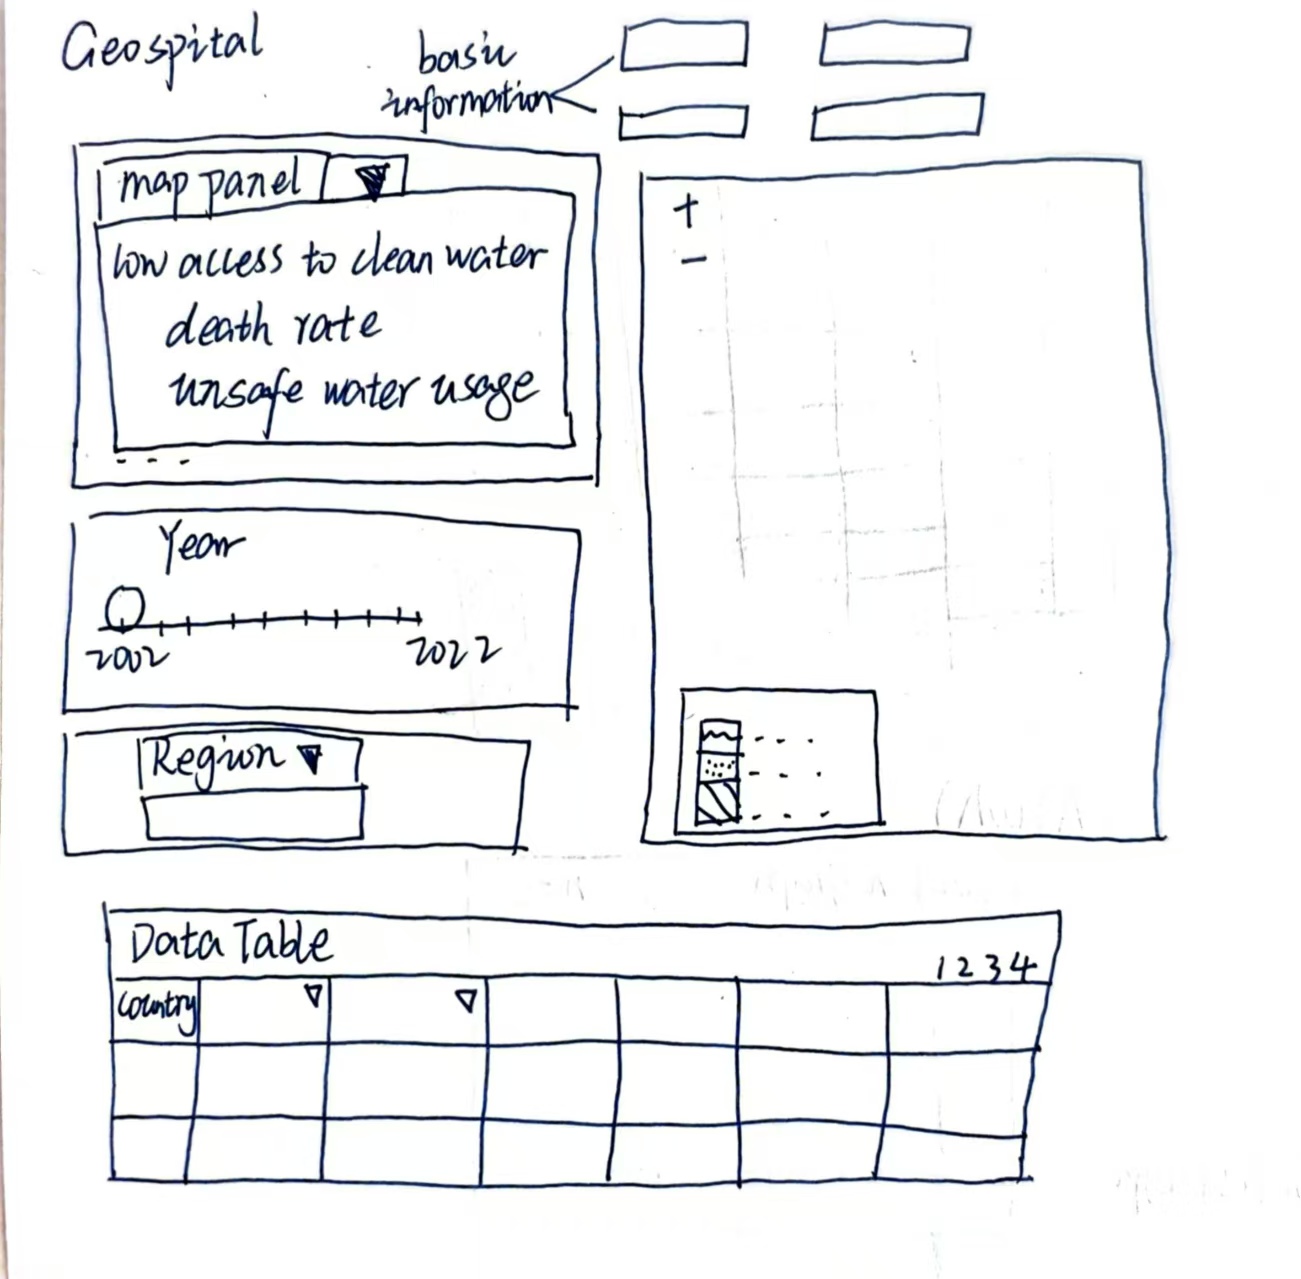 Geospital
basic
information
map panel
+
-
low access to clean water
death rate
unsafe water usage
Year
2002
2022
Region
Data Table
1 2 3 4
Country